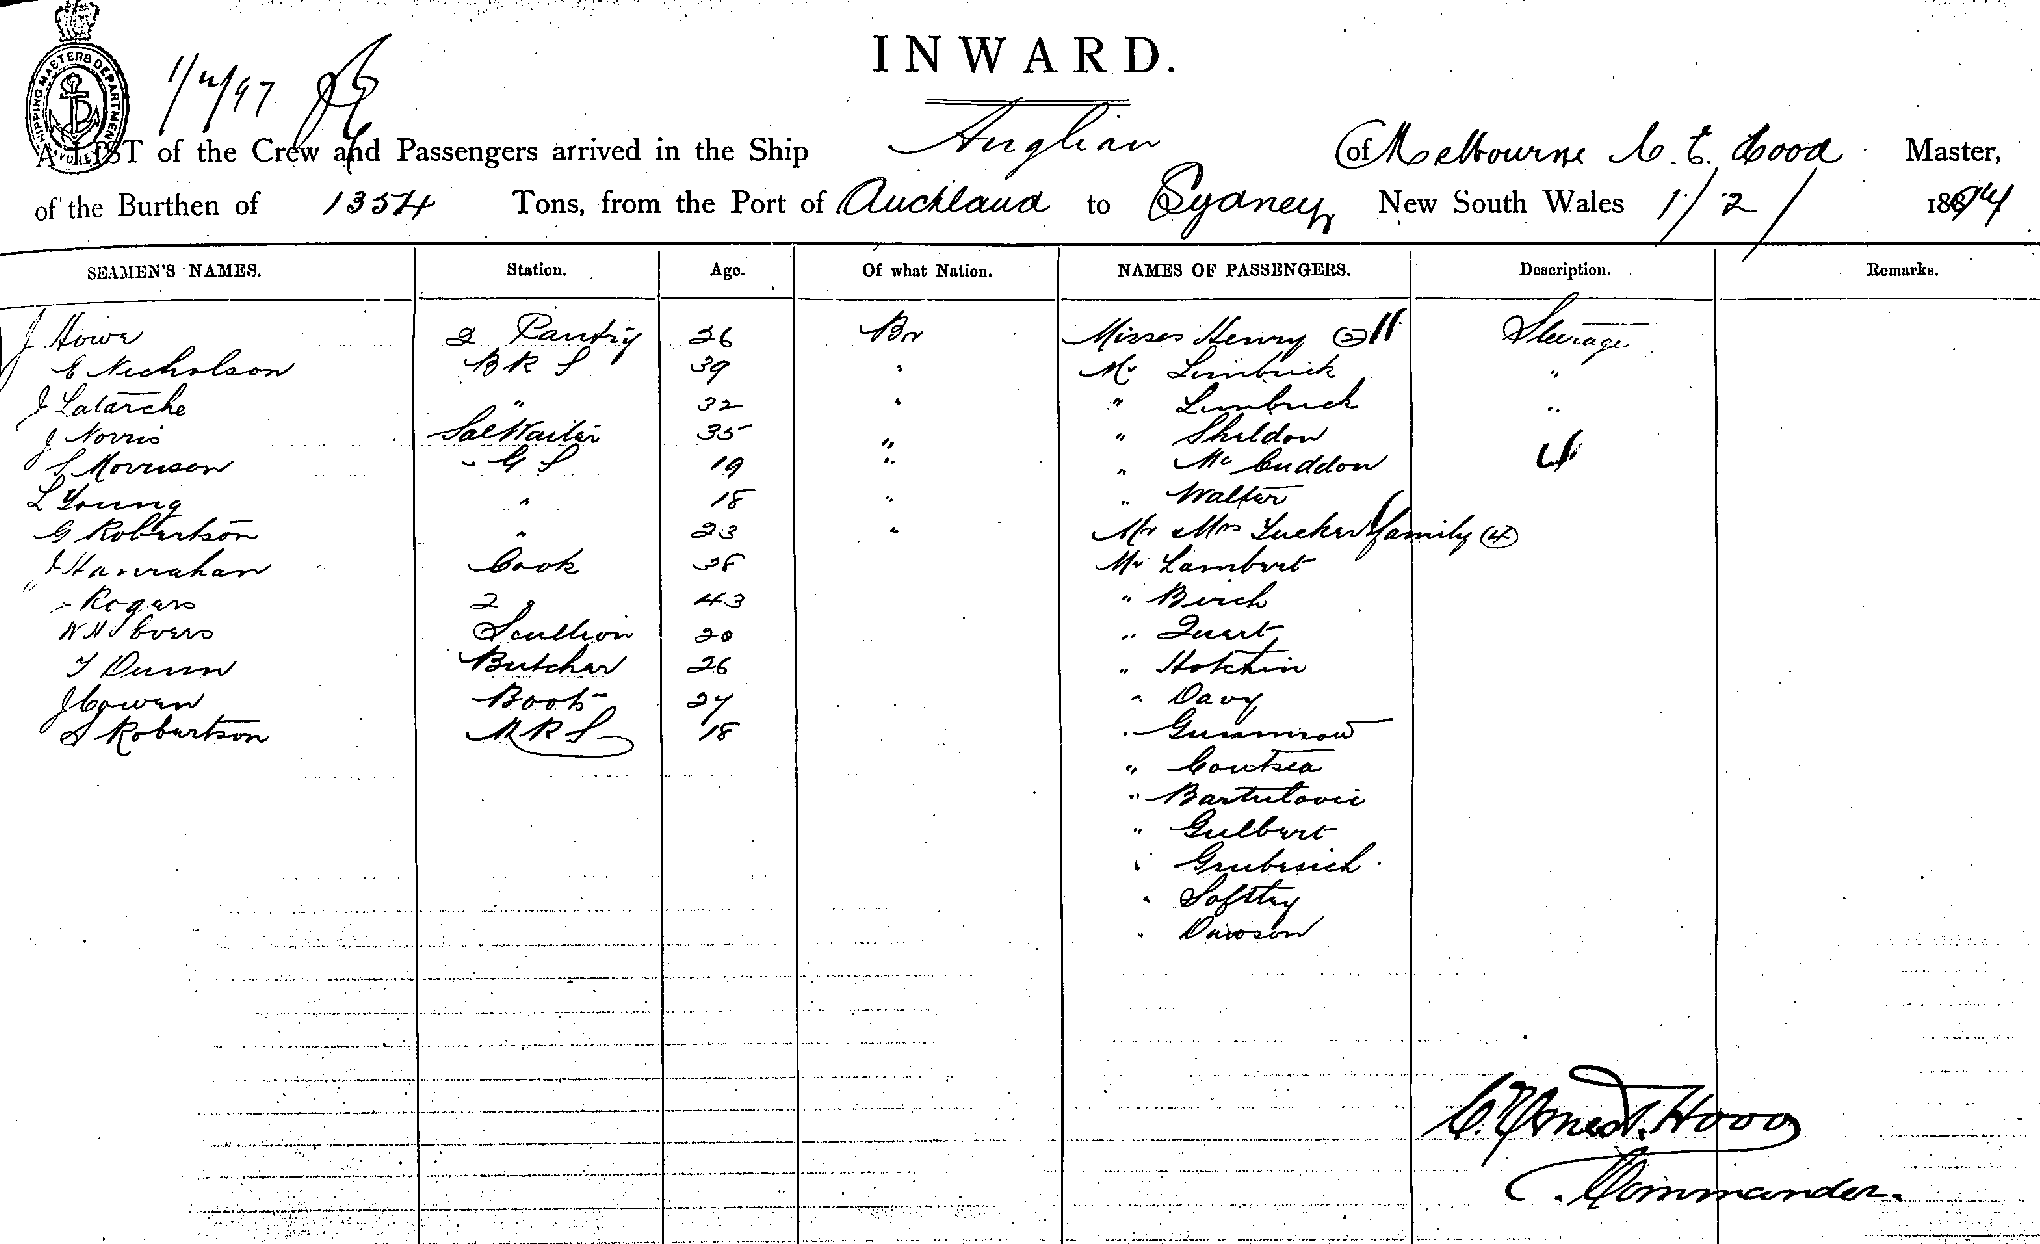 INWARD.
SHIPPING MASTERS DEPARTMENT
A LIST of the Crew and Passengers arrived in the Ship Anglian of Melbourne C. E. Hood Master,
of the Burthen of 1354 Tons, from the Port of Auckland to Sydney, New South Wales 1/2/ 1894
SEAMEN'S NAMES. Station. Age. Of what Nation. NAMES OF PASSENGERS. Description. Remarks.
J Howe 2 Pantry 26 Br Misses Henry (2) Steerage
E Nicholson B R S 39 " Mr Limbrick "
J Latarche " 32 " " Limbrick "
J Norris Sal Waiter 35 " " Sheldon
S Morrison " G S 19 " " McCuddon
L Young " 18 " " Walter
G Robertson " 23 " Mr Mrs Tucker & family (4)
J Hanrahan Cook 28 Mr Lambert
" Rogers 2 " 43 " Birch
W H Scullion 20 "
T Dunn Butcher 26 " Hotchin
J Cowen Boots 27 " Davy
S Robertson M R S 18 "
"
" Bartulovic
" Gulbert
" Grubisich
"
" Dawson
C. Ernest. Hood
Commander.